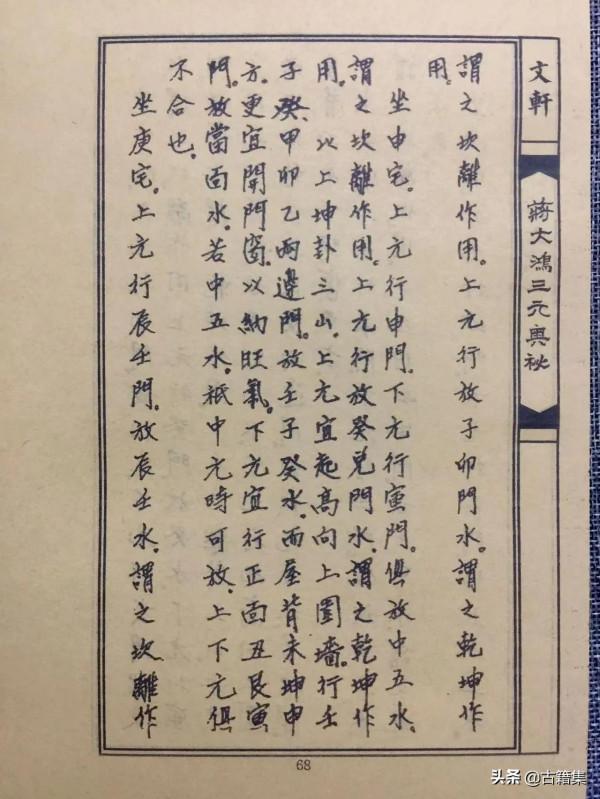 文軒
蔣大鴻三元奧秘
謂之坎離作用。上元行放子卯門水。謂之乾坤作
用。
坐申宅。上元行申門。下元行寅門。俱放中五水。
謂之坎離作用。上元行放癸兌門水。謂之乾坤作
用。以上坤卦三山。上元宜起高向上圍墻。行壬
子癸、甲卯乙兩邊門。放壬子癸水。而屋背未坤申
方。更宜開門窗。以納旺氣。下元宜行正面丑艮寅
門。放當面水。若中五水。祇中元時可放。上下元俱
不合也。
坐庚宅。上元行辰壬門。放辰壬水。謂之坎離作
68
头条 @古籍集